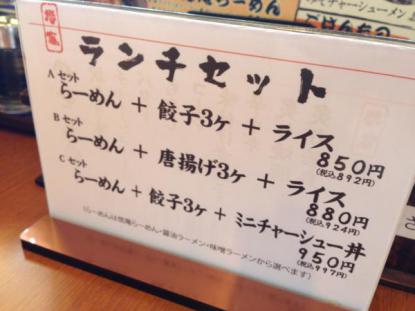 らーめん
ランチセット
Aセット
らーめん + 餃子3ヶ + ライス
850円
(税込892円)
Bセット
らーめん + 唐揚げ3ヶ + ライス
880円
(税込924円)
Cセット
らーめん + 餃子3ヶ + ミニチャーシュー丼
950円
(税込997円)
醤油ラーメン・味噌ラーメンから選べます)